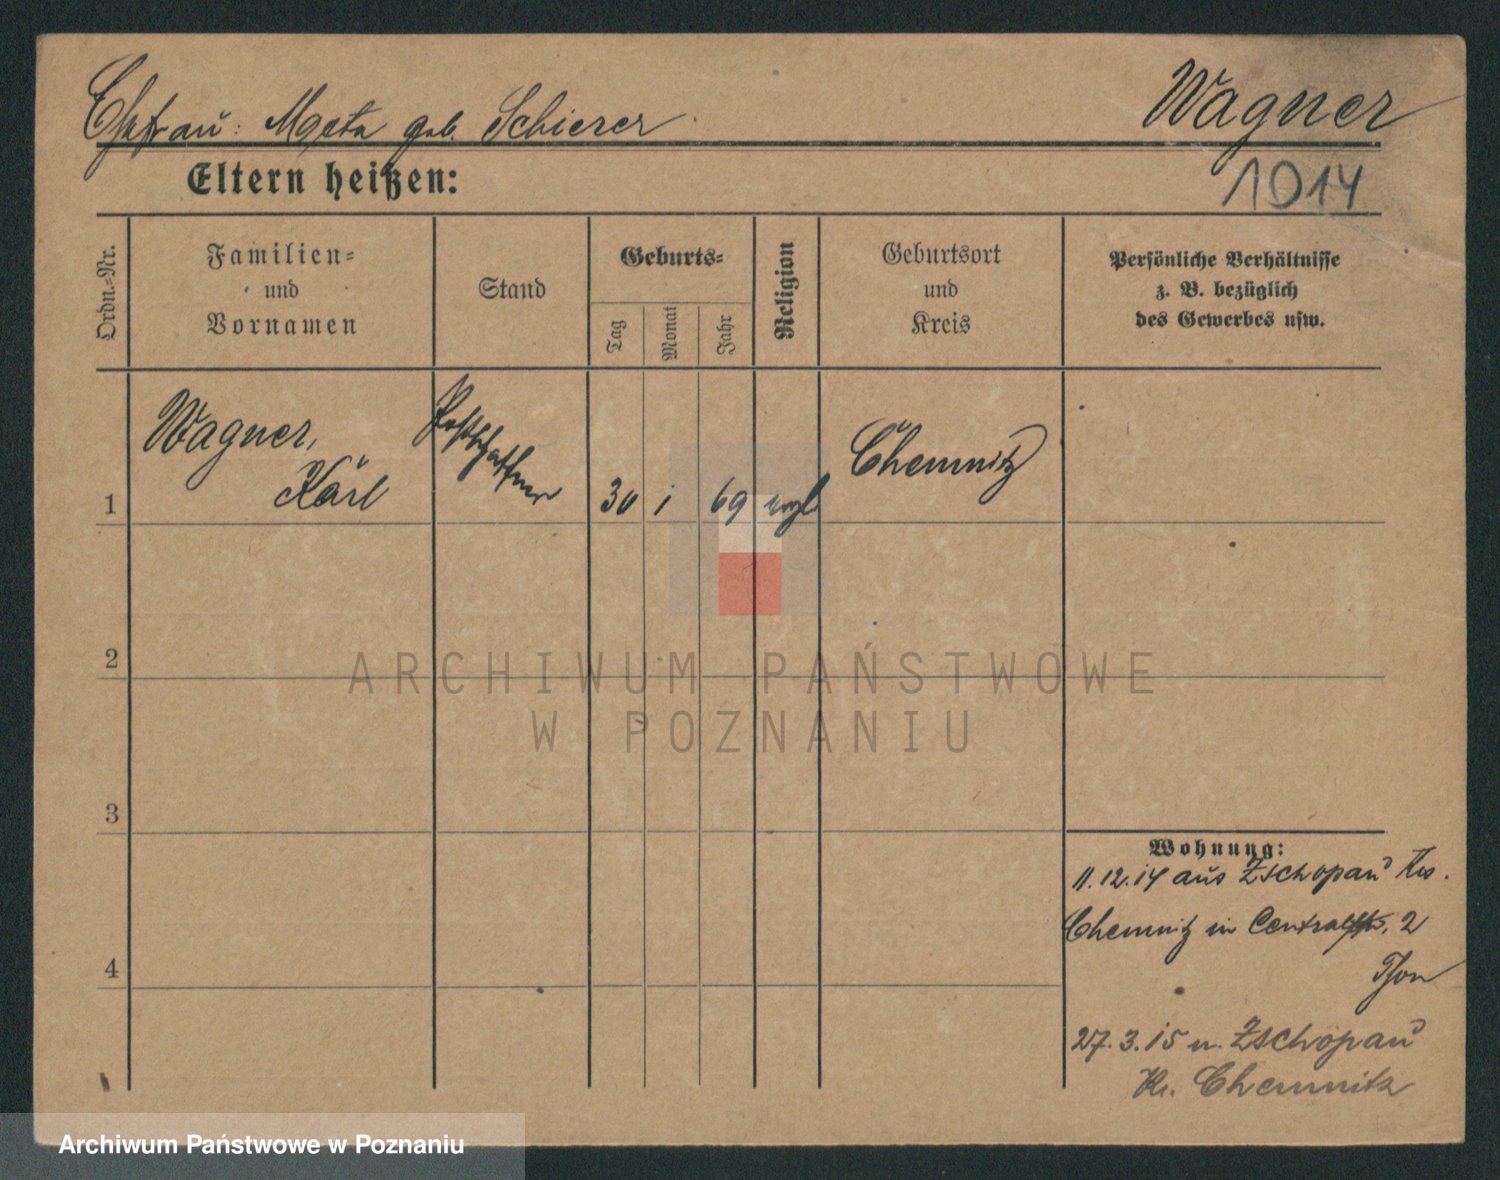 Ehefrau: Meta geb. Schierer
Wagner
Eltern heißen:
1014
Ordn.-Nr.
Familien=
und
Vornamen
Stand
Geburts=
Tag
Monat
Jahr
Religion
Geburtsort
und
Kreis
Persönliche Verhältnisse
z. B. bezüglich
des Gewerbes usw.
1
Wagner,
Karl
Postschaffner
30
1
69
evgl
Chemnitz
2
3
4
Wohnung:
11.12.14 aus Zschopau Krs.
Chemnitz in Centralstr. 2
27.3.15 n. Zschopau
Kr. Chemnitz
ARCHIWUM PAŃSTWOWE
W POZNANIU
Archiwum Państwowe w Poznaniu